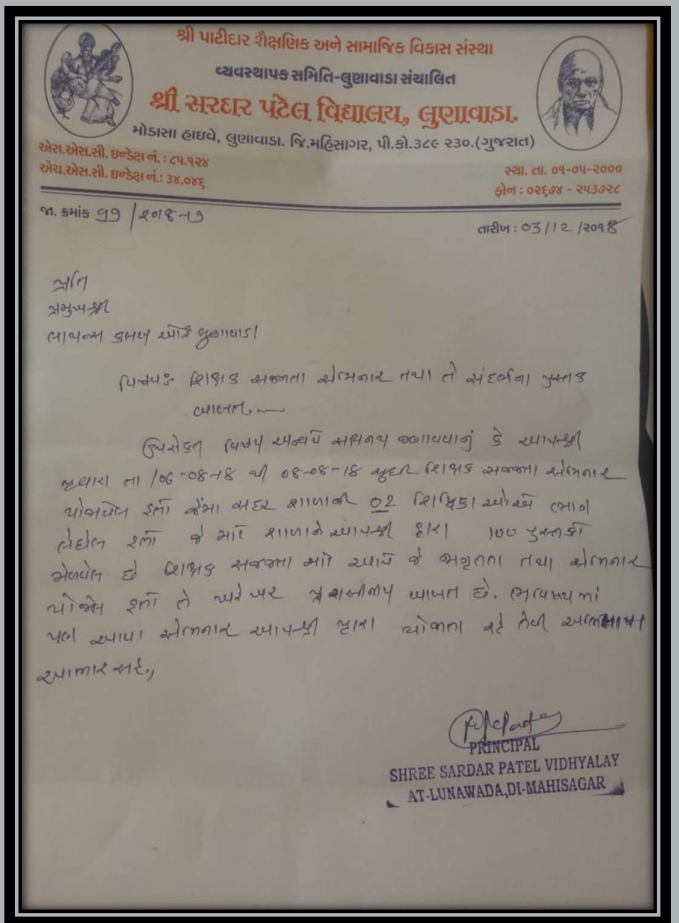 શ્રી પાટીદાર શૈક્ષણિક અને સામાજિક વિકાસ સંસ્થા
વ્યવસ્થાપક સમિતિ-લુણાવાડા સંચાલિત
શ્રી સરદાર પટેલ વિદ્યાલય, લુણાવાડા.
મોડાસા હાઇવે, લુણાવાડા. જિ.મહિસાગર, પી.કો.૩૮૯ ૨૩૦.(ગુજરાત)
એસ.એસ.સી. ઇન્ડેક્ષ નં. : ૮૫.૧૨૪
એચ.એસ.સી. ઇન્ડેક્ષ નં.: ૩૪.૦૪૬
સ્થા. તા. ૦૧-૦૫-૨૦૦૦
ફોન : ૦૨૬૭૪ - ૨૫૩૭૨૮
જા. ક્રમાંક ૧૧ / ૨૦૧૮-૧
તારીખ : 03/12/૨૦૧8
પ્રતિ
પ્રમુખશ્રી
લાયન્સ કલબ ઓફ લુણાવાડા
વિષયઃ શિક્ષક સજ્જતા સેમિનાર તથા તે સંદર્ભના પુસ્તક
બાબત.....
ઉપરોક્ત વિષય અન્વયે સવિનય જણાવવાનું કે આપશ્રી
દ્વારા તા /06-08-18 થી 08-08-18 સુધી શિક્ષક સજ્જતા સેમિનાર
યોજાયેલ હતો જેમાં સદર શાળાની 02 શિક્ષિકા ઓએ ભાગ
લીધેલ હતો જે માટે શાળાને આપશ્રી દ્વારા 100 પુસ્તકો
મેળવેલ છે શિક્ષક સજ્જતા માટે આપે જે જાગૃતતા તથા સેમિનાર
યોજેલ હતો તે ખરેખર પ્રશંસનીય બાબત છે. ભવિષ્યમાં
પણ આવા સેમિનાર આપશ્રી દ્વારા યોજાતા રહે તેવી અભિલાષા
આભાર સહ.,
PRINCIPAL
SHREE SARDAR PATEL VIDHYALAY
AT-LUNAWADA,DI-MAHISAGAR